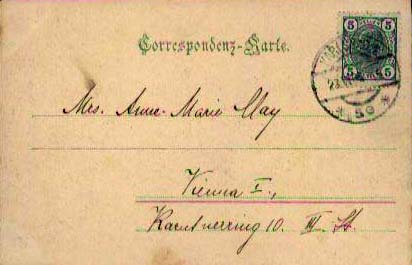 5 5
Correspondenz-Karte.
5 5
Mrs. Anne-Marie Clay
Vienna I.,
Karntnerring 10. III. St.